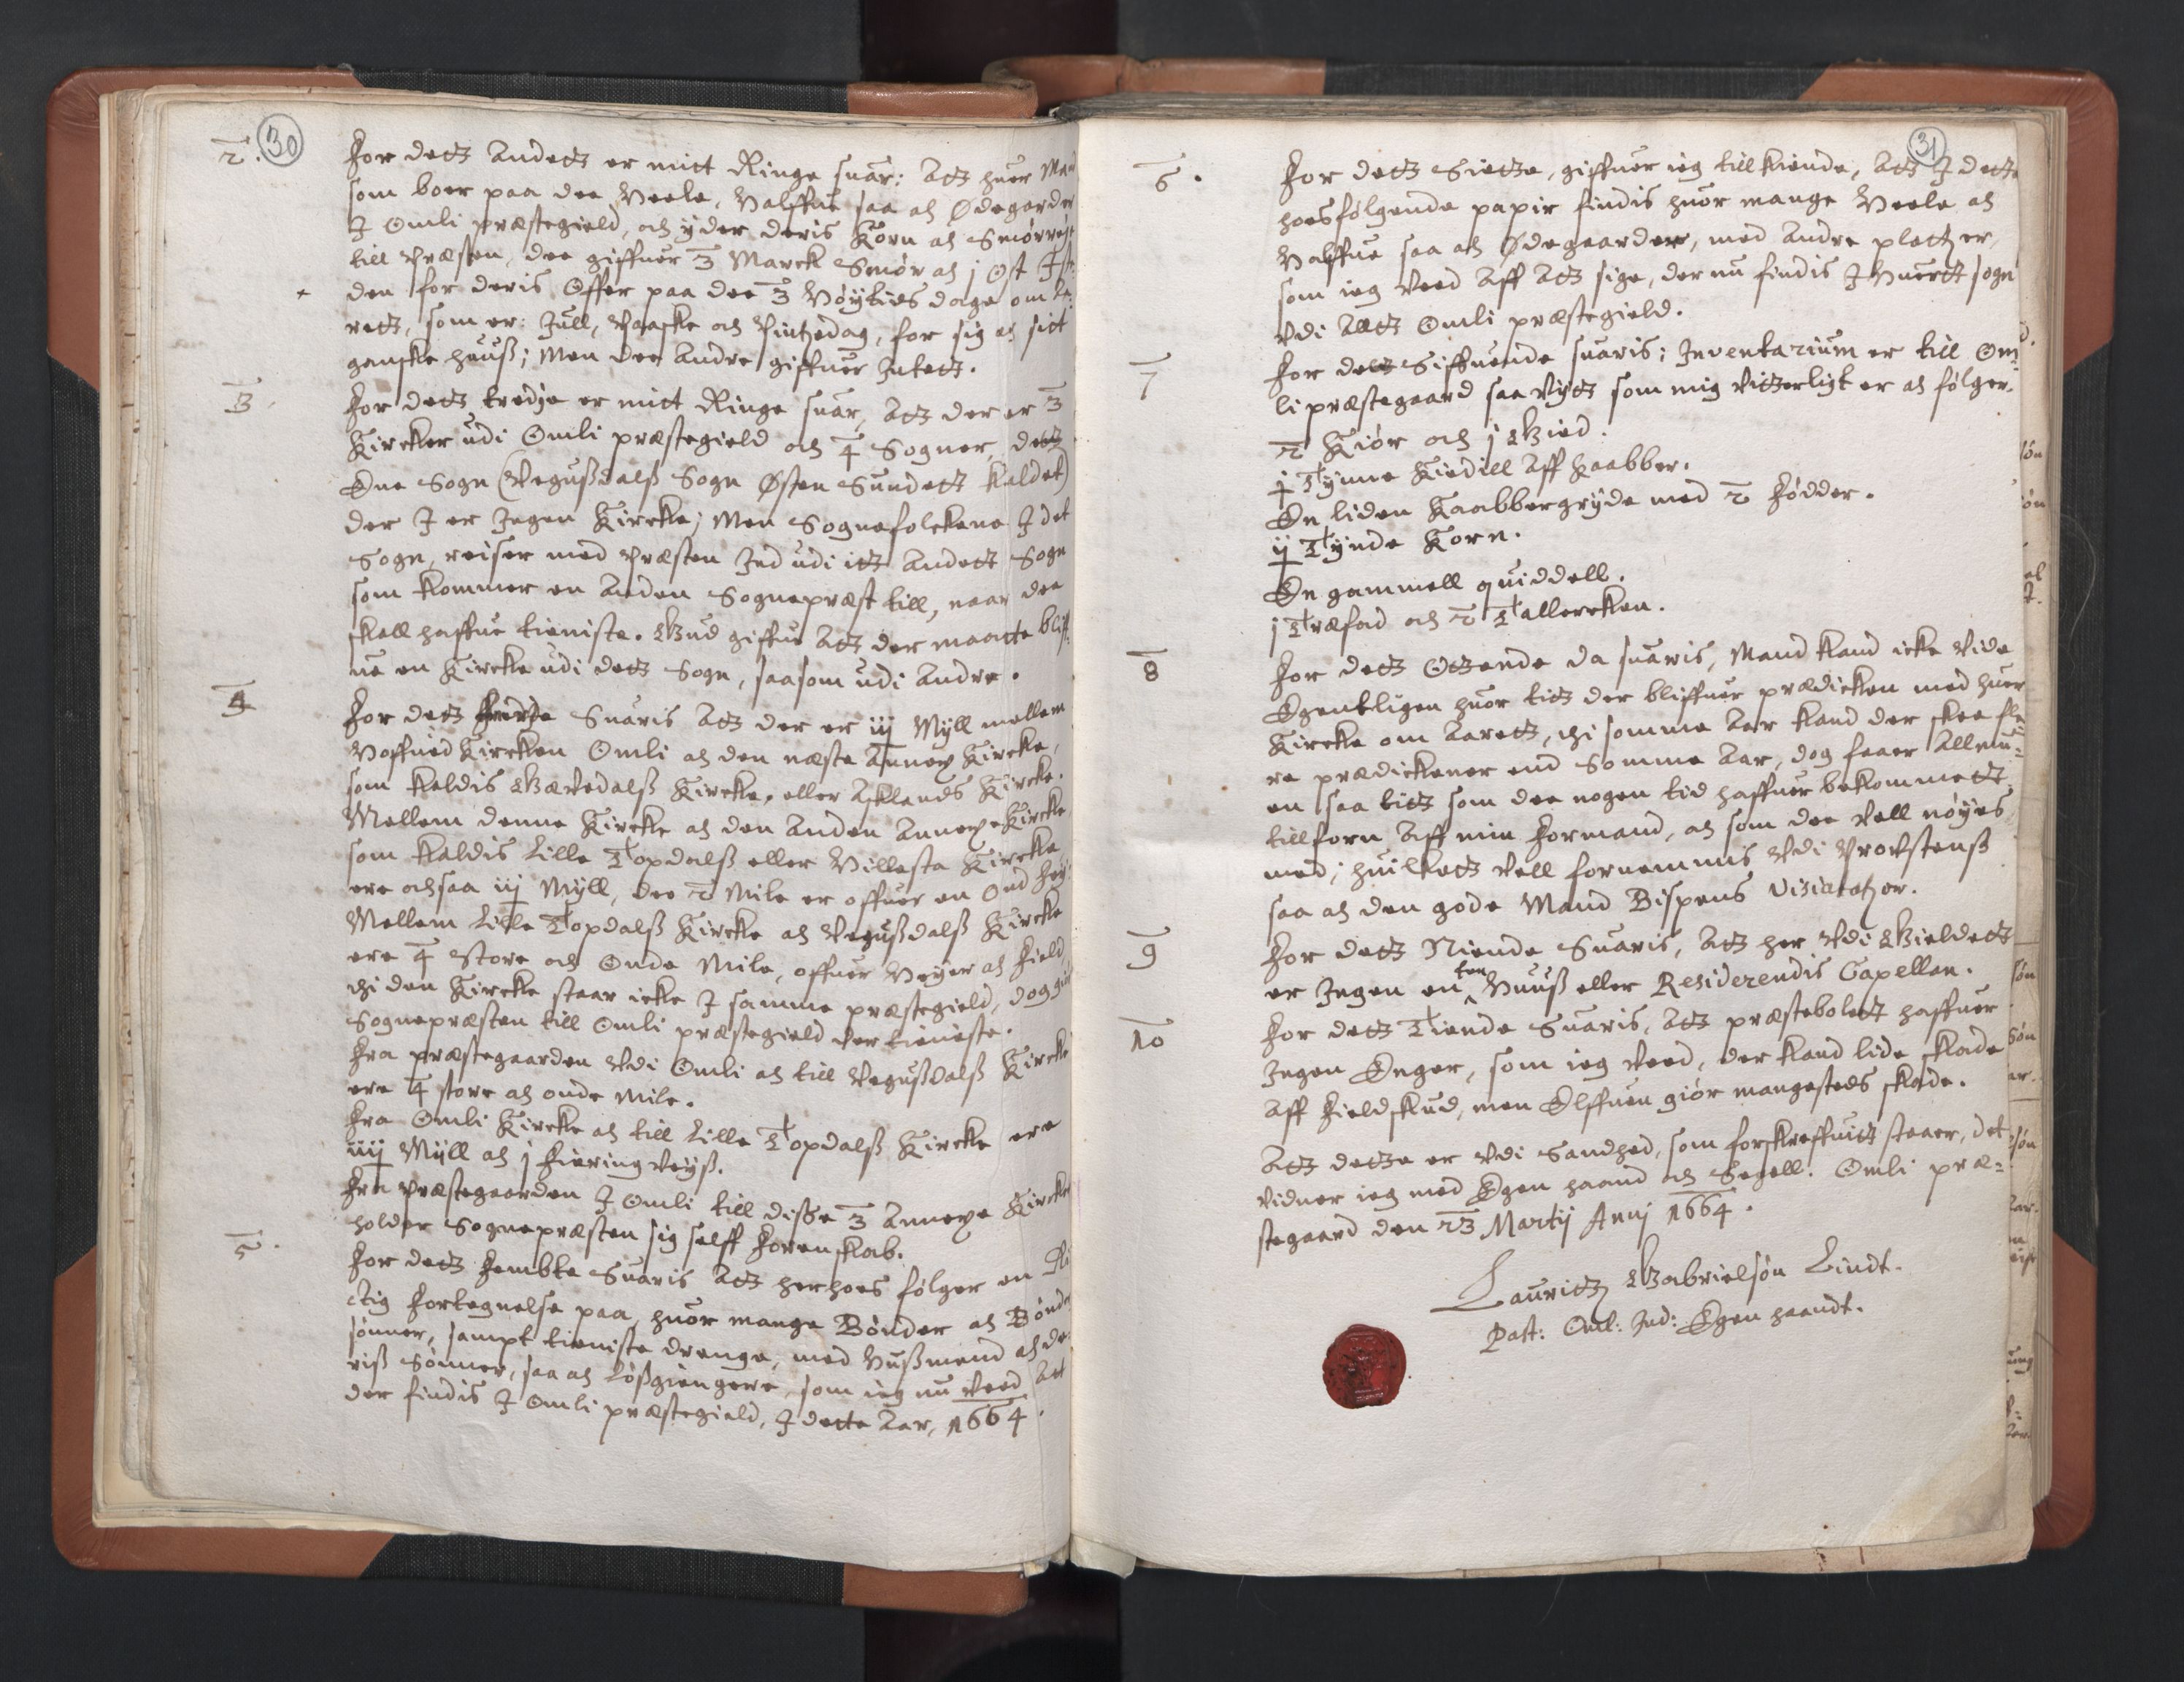 30
2. For dett Andett er mitt Ringe suar: Att huer Mand
som boer paa dee Heele, Halffue saa och Ødegarder
I Omli præstegield, och ÿder deris Korn och Smørrest
till Præsten, dee giffuer 3 Marck Smør och j Ost
den for deris Offer paa dee 3 Høÿtids dage om Aa-
rett, som er: Jull, Paaske och Pintzedag, for sig och sitt
ganske huuß; Men dee Andre giffuer Intett.
3 For dett tredje er mitt Ringe suar, Att der er 3
Kircker udi Omli præstegield och 4 Sogner, dett
Ene Sogn (Vegußdalß Sogn Østen Sundett Kaldet)
der I er Ingen Kircke; Men Sognefolckene I det
Sogn, reiser med Præsten Ind udi itt Andett Sogn
som kommer en Anden Sognepræst till, naar dee
skall haffue tieniste. Gud giffue Att der maatte bliff-
ue en Kircke udi dett Sogn, saasom udi Andre.
4 For dett fierde Suaris Att der er iij Mÿll mellem
Hoffued Kircken Omli och den næste Annex Kircke,
som kaldis Gierredalß Kircke, eller Asklands Kircke.
Mellem denne Kircke och den Anden Annexe Kircke
som kaldis Lille Topdalß eller Hillesta Kircke
ere ochsaa iij Mÿll, dee 2 Mile er offuer en Ond heÿ.
Mellem Lille Topdalß Kircke och Vegußdalß Kircke
ere 4 store och Onde Mile, offuer Heÿer och Field,
thi den Kircke staar icke I samme præstegield, dog giør
Sognepræsten till Omli præstegield der tieniste.
Fra præstegaarden Vdi Omli och till Vegußdalß Kircke
ere 4 store och onde Mile.
Fra Omli Kircke och till Lille Topdalß Kircke ere
iiij Mÿll och j fiering Veÿß.
Fra Præstegaarden I Omli till disse 3 Annexe Kircker
holder Sognepræsten sig selff Forenskab.
5. For dett Fembte Suaris Att herhoes følger en Ri-
ctig Fortegnelse paa, huor mange Bønder och Bønder
sønner, sampt tieniste drenge, med Hußmend och de-
riß Sønner, saa och Lößgiengere, som ieg nu Veed Att
der findis I Omli præstegield, I dette Aar, 1664.
31
6. For dett Siette, giffuer ieg tillkiende, Att I dette
hoesfølgende papir findis huor mange Heele och
Halffue saa och Ødegaarder, med Andre platzer,
som ieg Veed Aff Att sige, der nu findis I Huertt sogn
Vdi Alt Omli præstegield.
7 For dett Siffuende suaris; Inventarium er till Om-
li præstegaard saa Vÿtt som mig Vitterligt er och følger.
2 Kiør och j Gied.
j Tÿnne Kiedill Aff Kaabber.
En liden Kaabbergrÿde med 2 Fødder.
ij Tÿnde Korn.
En gammell quiddell.
j Træfad och 2 Tallercken.
8 For dett Ottende da suaris, Mand kand icke Vide
Egentligen huor titt der bliffuer prædicken med huer
Kircke om Aarett, thi somme Aar kand der skee fle-
re prædickener end Somme Aar, dog faaer Allmu-
en saa titt som dee nogen tid haffuer bekommett
tillforn Aff min Formand, och som dee Vell nøÿes
med; huilckett Vell fornemmis Vdi Provstenß
saa och den gode Mand Bispens Visitatzer.
9 For dett Niende Suaris, Att her Vdi Gieldett
er Ingen enten Huuß eller Residerendis Capellan.
10 For dett Tiende Suaris, Att præstebolett haffuer
Ingen Enger, som ieg Veed, der kand lide skade
Aff Fieldskud, men Elffuen giør mangesteds skade.
Att dette er Vdi Sandhed, som forskreffuitt staaer, det
Vidner ieg med Egen haand och Segell. Omli præ-
stegaard den 23 Martij Annj 1664.
Lauritz Gabrielsøn Lindt.
Past: Oml: Ind: Egen haandt.